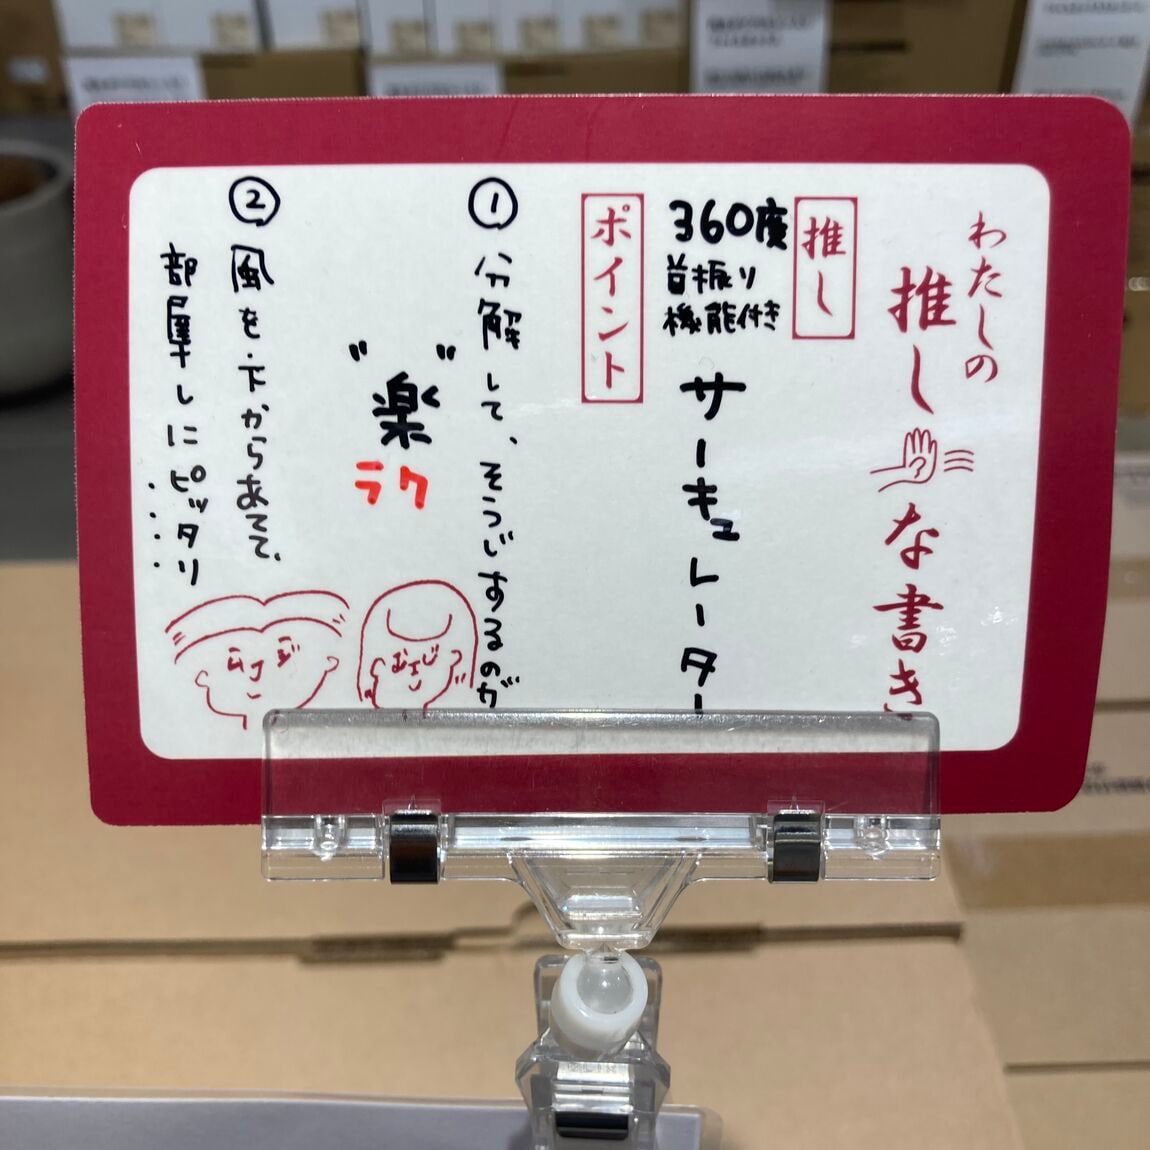 わたしの
推しな書き
推し
360度
首振り
機能付き
サーキュレーター
ポイント
① 分解して、そうじするのが
"楽"
ラク
② 風を下からあてて、
部屋干しにピッタリ